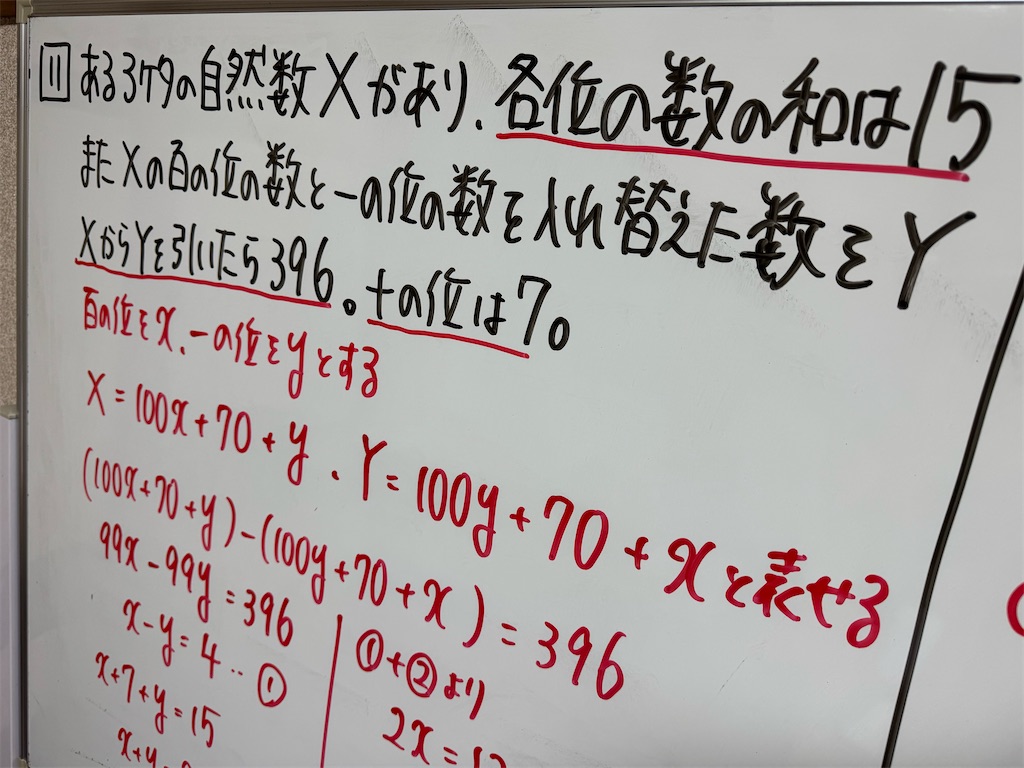 11 ある3ケタの自然数Xがあり、各位の数の和は15
またXの百の位の数と一の位の数を入れ替えた数をY
XからYを引いたら396。十の位は7。
百の位をx、一の位をyとする
X=100x+70+y、Y=100y+70+xと表せる
(100x+70+y)-(100y+70+x)=396
99x-99y=396
x-y=4…①
x+7+y=15
x+y
①+②より
2x=12